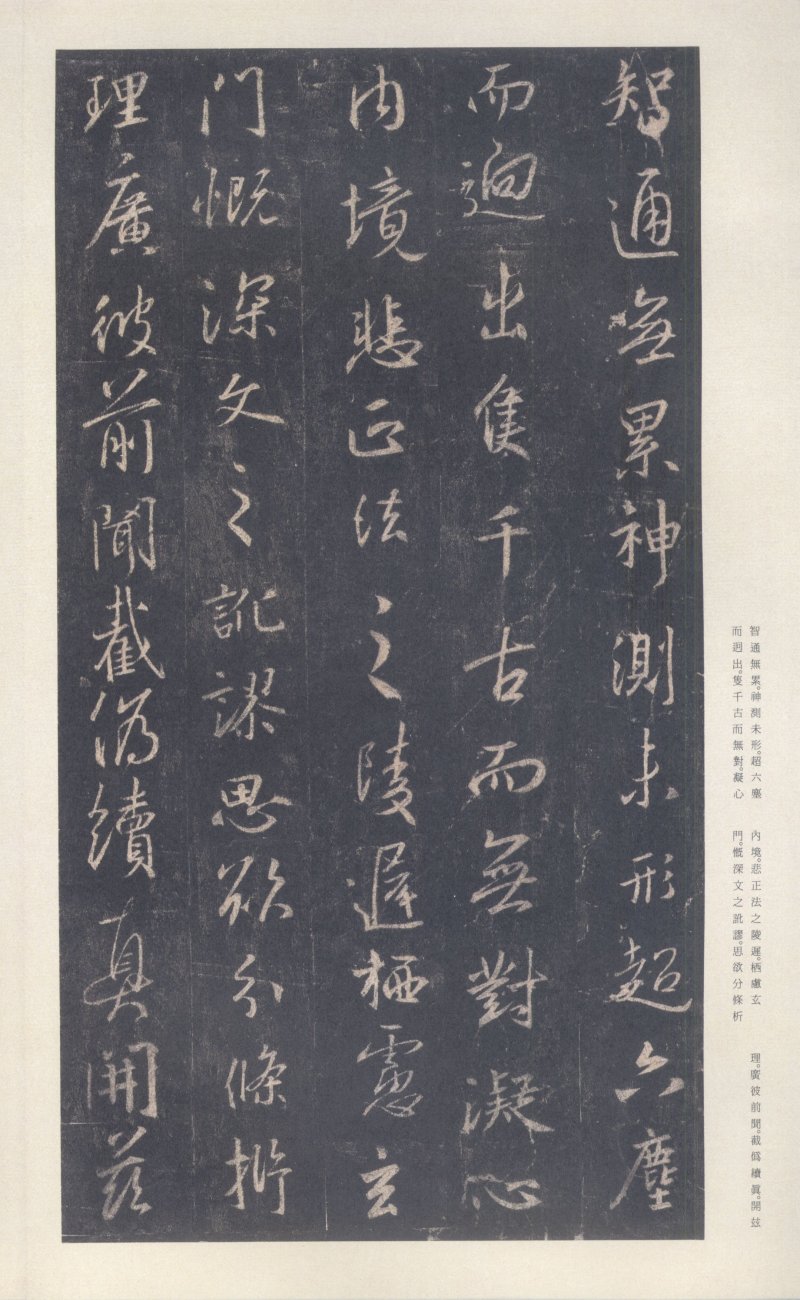 智通無累神測未形超六塵
而迥出隻千古而無對凝心
内境悲正法之陵遲栖慮玄
門慨深文之訛謬思欲分條析
理廣彼前聞截偽續真開茲
智通無累。神測未形。超六塵
而迥出。隻千古而無對。凝心
內境。悲正法之陵遲。栖慮玄
門。慨深文之訛謬。思欲分條析
理。廣彼前聞。截僞續眞。開玆